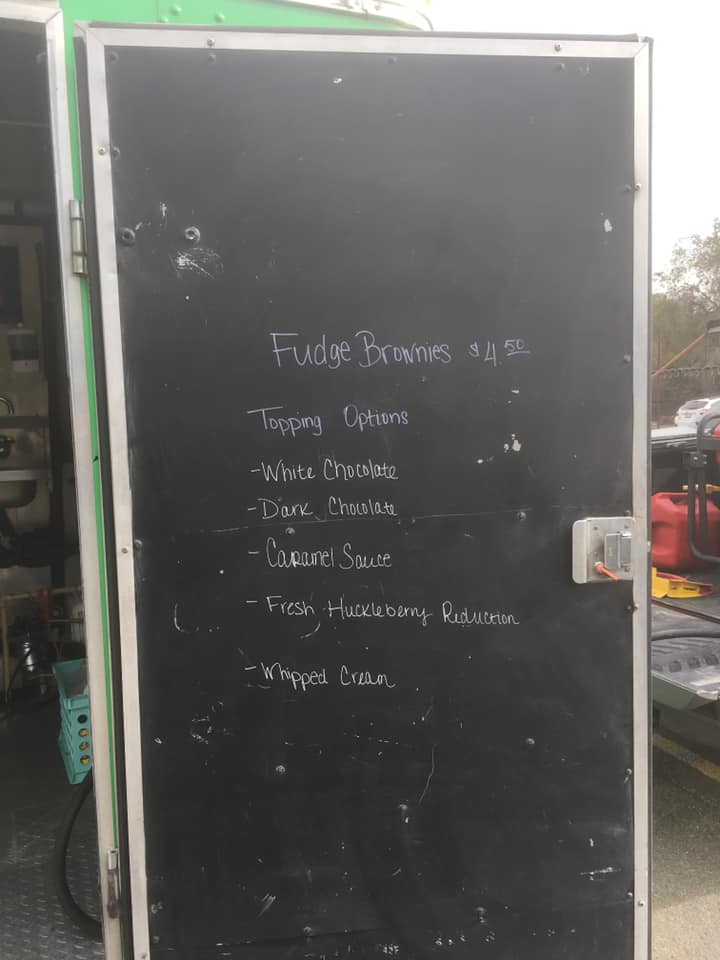 Fudge Brownies $4.50
Topping Options
-White Chocolate
-Dark Chocolate
-Caramel Sauce
-Fresh Huckleberry Reduction
-Whipped Cream